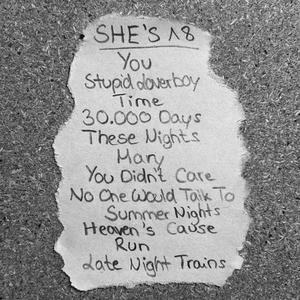 SHE'S 18
You
Stupid Loverboy
Time
30.000 Days
These Nights
Mary
You Didn't Care
No One Would Talk To
Summer Nights
Heaven's Cause
Run
Late Night Trains